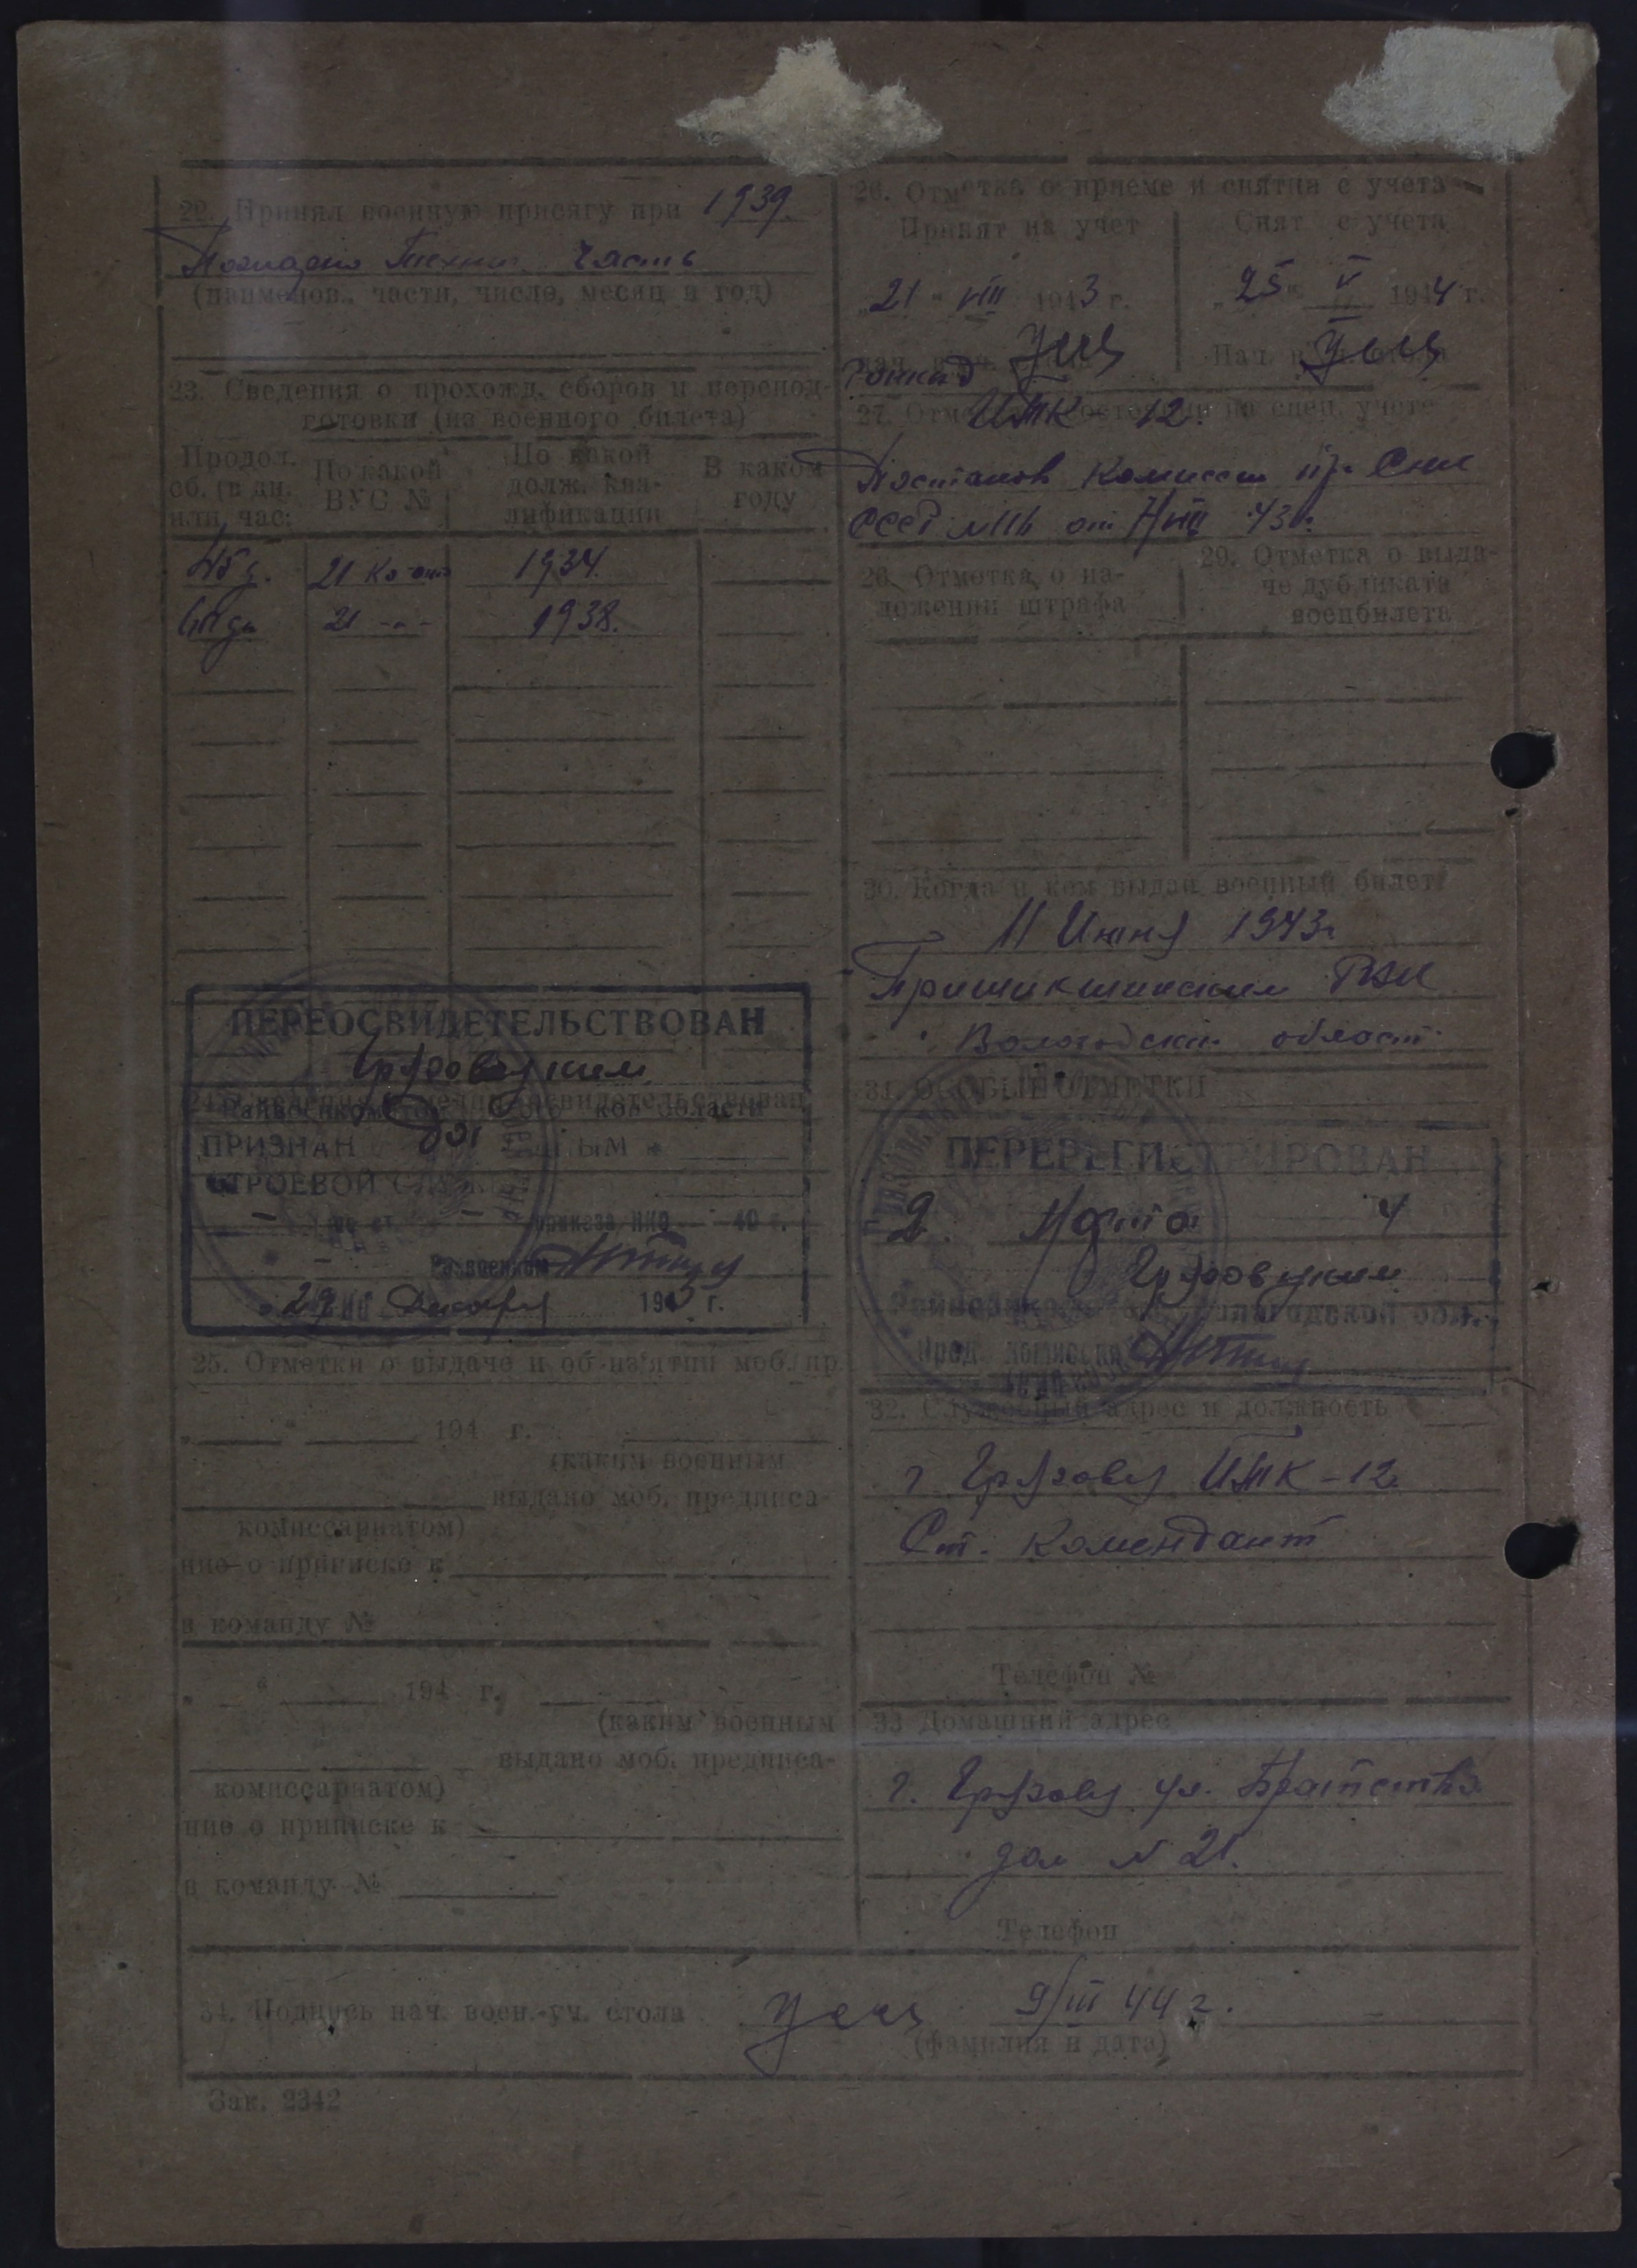 22. Принял военную присягу при 1939.
часть
(наименов. части, число, месяц и год)
23. Сведения о прохожд. сборов и перепод-
готовки (из военного билета)
Продол. сб. (в дн. или час.
По какой ВУС №
По какой долж. ква-лификации
В каком году
45 д. 21 1934.
21 -"- 1938.
ПЕРЕОСВИДЕТЕЛЬСТВОВАН
Грязовецким
Райвоенкоматом области
ПРИЗНАН
СТРОЕВОЙ
приказа НКО 40 г.
Райвоенком
"29" Декабря 1945 г.
25. Отметки о выдаче и об из'ятии моб. пр
" " 194 г.
(каким военным
выдано моб. предписа-
комиссариатом)
ние о приписке к
в команду №
" " 194 г.
(каким военным
выдано моб. предписа-
комиссариатом)
ние о приписке к
в команду №
26. Отметка о приеме и снятии с учета
Принят на учет
Снят с учета
"21" VIII 1943 г.
"25" V 1944 г.
Нач.
ИТК 12.
27. на спец. учете
Постанов Комиссии пр. Снк
СССР от 7/VIII 43 г.
28. Отметка о на-
ложении штрафа
29. Отметка о выда-
че дубликата
военбилета
30. Когда и кем выдан военный билет
11 Июня 1943 г
РВК
Вологодской област
31. ОСОБЫЕ ОТМЕТКИ
ПЕРЕРЕГИСТРИРОВАН
2 Марта 4
Грязовецким
Вологодской обл.
32. Служебный адрес и должность
г Грязовец ИТК-12
Ст. Комендант
Телефон №
33 Домашний адрес
г. Грязовец ул. Братства
дом N 21.
Телефон
34. Подпись нач. воен.-уч. стола 9/III 44 г.
(фамилия и дата)
Зак. 2342